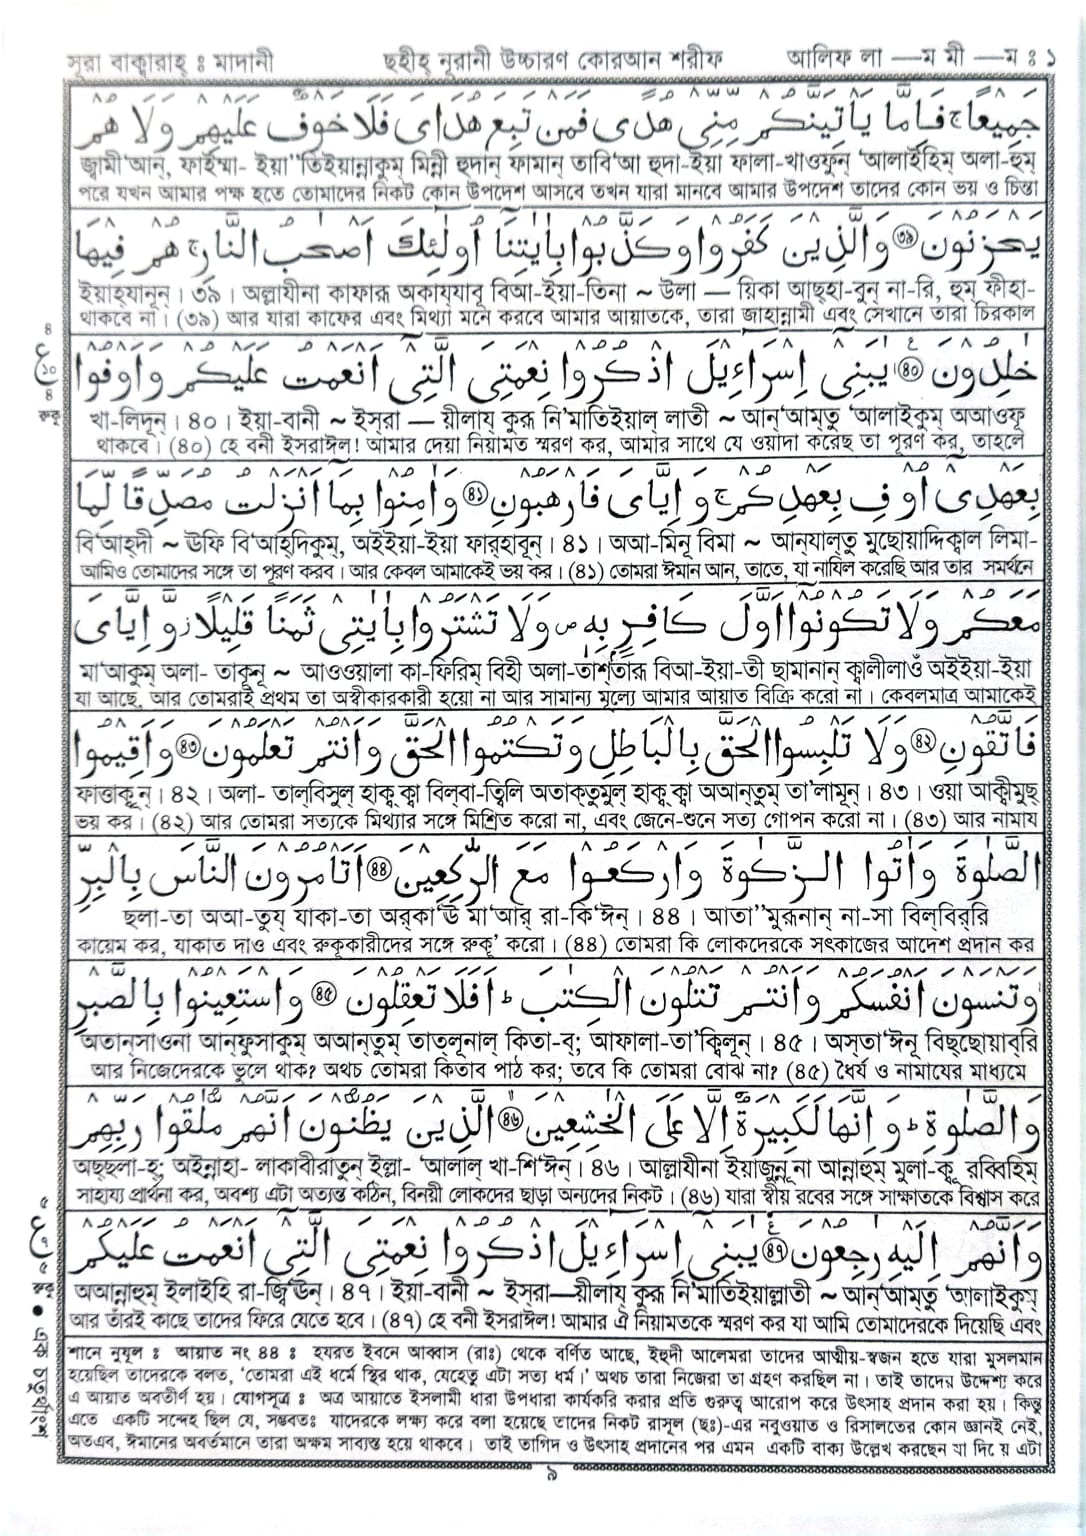 সূরা বাক্বারাহ্ ঃ মাদানী
ছহীহ্ নূরানী উচ্চারণ কোরআন শরীফ
আলিফ লা —ম মী —ম ঃ ১
جَمِيْعًا ج فَاِمَّا يَاْتِيَنَّكُمْ مِّنِّىْ هُدًى فَمَنْ تَبِعَ هُدَاىَ فَلَا خَوْفٌ عَلَيْهِمْ وَلَا هُمْ
জ্বামী'আন্, ফাইম্মা- ইয়া''তিইয়ান্নাকুম্ মিন্নী হুদান্ ফামান্ তাবি'আ হুদা-ইয়া ফালা-খাওফুন্ 'আলাইহিম্ অলা-হুম্
পরে যখন আমার পক্ষ হতে তোমাদের নিকট কোন উপদেশ আসবে তখন যারা মানবে আমার উপদেশ তাদের কোন ভয় ও চিন্তা
يَحْزَنُوْنَ ۝৩৯ وَالَّذِيْنَ كَفَرُوْا وَكَذَّبُوْا بِاٰيٰتِنَآ اُولٰٓئِكَ اَصْحٰبُ النَّارِ ج هُمْ فِيْهَا
ইয়াহ্যানূন্ । ৩৯ । অল্লাযীনা কাফারূ অকায্যাবূ বিআ-ইয়া-তিনা ~ উলা — য়িকা আছ্হা-বুন্ না-রি, হুম্ ফীহা-
থাকবে না । (৩৯) আর যারা কাফের এবং মিথ্যা মনে করবে আমার আয়াতকে, তারা জাহান্নামী এবং সেখানে তারা চিরকাল
৪
ع
১০
৪
রুকূ
خٰلِدُوْنَ ۝৪০ يٰبَنِىْٓ اِسْرَآءِيْلَ اذْكُرُوْا نِعْمَتِىَ الَّتِىْٓ اَنْعَمْتُ عَلَيْكُمْ وَاَوْفُوْا
খা-লিদূন্ । ৪০ । ইয়া-বানী ~ ইস্রা — য়ীলায্ কুরূ নি'মাতিইয়াল্ লাতী ~ আন্'আম্তু 'আলাইকুম্ অআওফূ
থাকবে । (৪০) হে বনী ইসরাঈল! আমার দেয়া নিয়ামত স্মরণ কর, আমার সাথে যে ওয়াদা করেছ তা পূরণ কর, তাহলে
بِعَهْدِىْٓ اُوْفِ بِعَهْدِكُمْ ج وَاِيَّاىَ فَارْهَبُوْنِ ۝৪১ وَاٰمِنُوْا بِمَآ اَنْزَلْتُ مُصَدِّقًا لِّمَا
বি'আহ্দী ~ ঊফি বি'আহ্দিকুম্, অইইয়া-ইয়া ফার্হাবূন্ । ৪১ । অআ-মিনূ বিমা ~ আন্যাল্তু মুছোয়াদ্দিক্বাল লিমা-
আমিও তোমাদের সঙ্গে তা পূরণ করব । আর কেবল আমাকেই ভয় কর । (৪১) তোমরা ঈমান আন, তাতে, যা নাযিল করেছি আর তার সমর্থনে
مَعَكُمْ وَلَا تَكُوْنُوْٓا اَوَّلَ كَافِرٍۢ بِهٖ ص وَلَا تَشْتَرُوْا بِاٰيٰتِىْ ثَمَنًا قَلِيْلًا ز وَّاِيَّاىَ
মা'আকুম্ অলা- তাকূনূ ~ আওওয়ালা কা-ফিরিম্ বিহী অলা-তাশ্তারূ বিআ-ইয়া-তী ছামানান্ ক্বালীলাওঁ অইইয়া-ইয়া
যা আছে, আর তোমরাই প্রথম তা অস্বীকারকারী হয়ো না আর সামান্য মূল্যে আমার আয়াত বিক্রি করো না । কেবলমাত্র আমাকেই
فَاتَّقُوْنِ ۝৪২ وَلَا تَلْبِسُوا الْحَقَّ بِالْبَاطِلِ وَتَكْتُمُوا الْحَقَّ وَاَنْتُمْ تَعْلَمُوْنَ ۝৪৩ وَاَقِيْمُوا
ফাত্তাকূন্ । ৪২ । অলা- তাল্বিসুল্ হাক্ব্ ক্বা বিল্বা-ত্বিলি অতাক্তুমুল্ হাক্ব্ ক্বা অআন্তুম্ তা'লামূন্ । ৪৩ । ওয়া আক্বীমুছ্
ভয় কর । (৪২) আর তোমরা সত্যকে মিথ্যার সঙ্গে মিশ্রিত করো না, এবং জেনে-শুনে সত্য গোপন করো না । (৪৩) আর নামায
الصَّلٰوةَ وَاٰتُوا الزَّكٰوةَ وَارْكَعُوْا مَعَ الرّٰكِعِيْنَ ۝৪৪ اَتَاْمُرُوْنَ النَّاسَ بِالْبِرِّ
ছলা-তা অআ-তুয্ যাকা-তা অর্কা'ঊ মা'আর্ রা-কি'ঈন্ । ৪৪ । আতা''মুরূনান্ না-সা বিল্বির্রি
কায়েম কর, যাকাত দাও এবং রুকূকারীদের সঙ্গে রুকূ' করো । (৪৪) তোমরা কি লোকদেরকে সৎকাজের আদেশ প্রদান কর
وَتَنْسَوْنَ اَنْفُسَكُمْ وَاَنْتُمْ تَتْلُوْنَ الْكِتٰبَ ط اَفَلَا تَعْقِلُوْنَ ۝৪৫ وَاسْتَعِيْنُوْا بِالصَّبْرِ
অতান্সাওনা আন্ফুসাকুম্ অআন্তুম্ তাত্লূনাল্ কিতা-ব্; আফালা-তা'ক্বিলূন্ । ৪৫ । অস্তা'ঈনূ বিছ্ছোয়াব্রি
আর নিজেদেরকে ভুলে থাক? অথচ তোমরা কিতাব পাঠ কর; তবে কি তোমরা বোঝ না? (৪৫) ধৈর্য ও নামাযের মাধ্যমে
وَالصَّلٰوةِ ط وَاِنَّهَا لَكَبِيْرَةٌ اِلَّا عَلَى الْخٰشِعِيْنَ ۝৪৬ الَّذِيْنَ يَظُنُّوْنَ اَنَّهُمْ مُّلٰقُوْا رَبِّهِمْ
অছ্ছলা-হ্; অইন্নাহা- লাকাবীরাতুন্ ইল্লা- 'আলাল্ খা-শি'ঈন্ । ৪৬ । আল্লাযীনা ইয়াজুন্নূনা আন্নাহুম্ মুলা-কূ রব্বিহিম্
সাহায্য প্রার্থনা কর, অবশ্য এটা অত্যন্ত কঠিন, বিনয়ী লোকদের ছাড়া অন্যদের নিকট । (৪৬) যারা স্বীয় রবের সঙ্গে সাক্ষাতকে বিশ্বাস করে
৫
ع
৭
৫
রুকূ
● এক চতুর্থাংশ
وَاَنَّهُمْ اِلَيْهِ رٰجِعُوْنَ ۝৪৭ يٰبَنِىْٓ اِسْرَآءِيْلَ اذْكُرُوْا نِعْمَتِىَ الَّتِىْٓ اَنْعَمْتُ عَلَيْكُمْ
অআন্নাহুম্ ইলাইহি রা-জ্বি'ঊন্ । ৪৭ । ইয়া-বানী ~ ইস্রা—য়ীলায্ কুরূ নি'মাতিইয়াল্লাতী ~ আন্'আম্তু 'আলাইকুম্
আর তাঁরই কাছে তাদের ফিরে যেতে হবে । (৪৭) হে বনী ইসরাঈল! আমার ঐ নিয়ামতকে স্মরণ কর যা আমি তোমাদেরকে দিয়েছি এবং
শানে নুযূল ঃ আয়াত নং ৪৪ ঃ হযরত ইবনে আব্বাস (রাঃ) থেকে বর্ণিত আছে, ইহুদী আলেমরা তাদের আত্মীয়-স্বজন হতে যারা মুসলমান
হয়েছিল তাদেরকে বলত, 'তোমরা এই ধর্মে স্থির থাক, যেহেতু এটা সত্য ধর্ম ।' অথচ তারা নিজেরা তা গ্রহণ করছিল না । তাই তাদের উদ্দেশ্য করে
এ আয়াত অবতীর্ণ হয় । যোগসূত্র ঃ অত্র আয়াতে ইসলামী ধারা উপধারা কার্যকরি করার প্রতি গুরুত্ব আরোপ করে উৎসাহ প্রদান করা হয় । কিন্তু
এতে একটি সন্দেহ ছিল যে, সম্ভবতঃ যাদেরকে লক্ষ্য করে বলা হয়েছে তাদের নিকট রাসূল (ছঃ)-এর নবুওয়াত ও রিসালতের কোন জ্ঞানই নেই,
অতএব, ঈমানের অবর্তমানে তারা অক্ষম সাব্যস্ত হয়ে থাকবে । তাই তাগিদ ও উৎসাহ প্রদানের পর এমন একটি বাক্য উল্লেখ করছেন যা দিয়ে এটা
৯